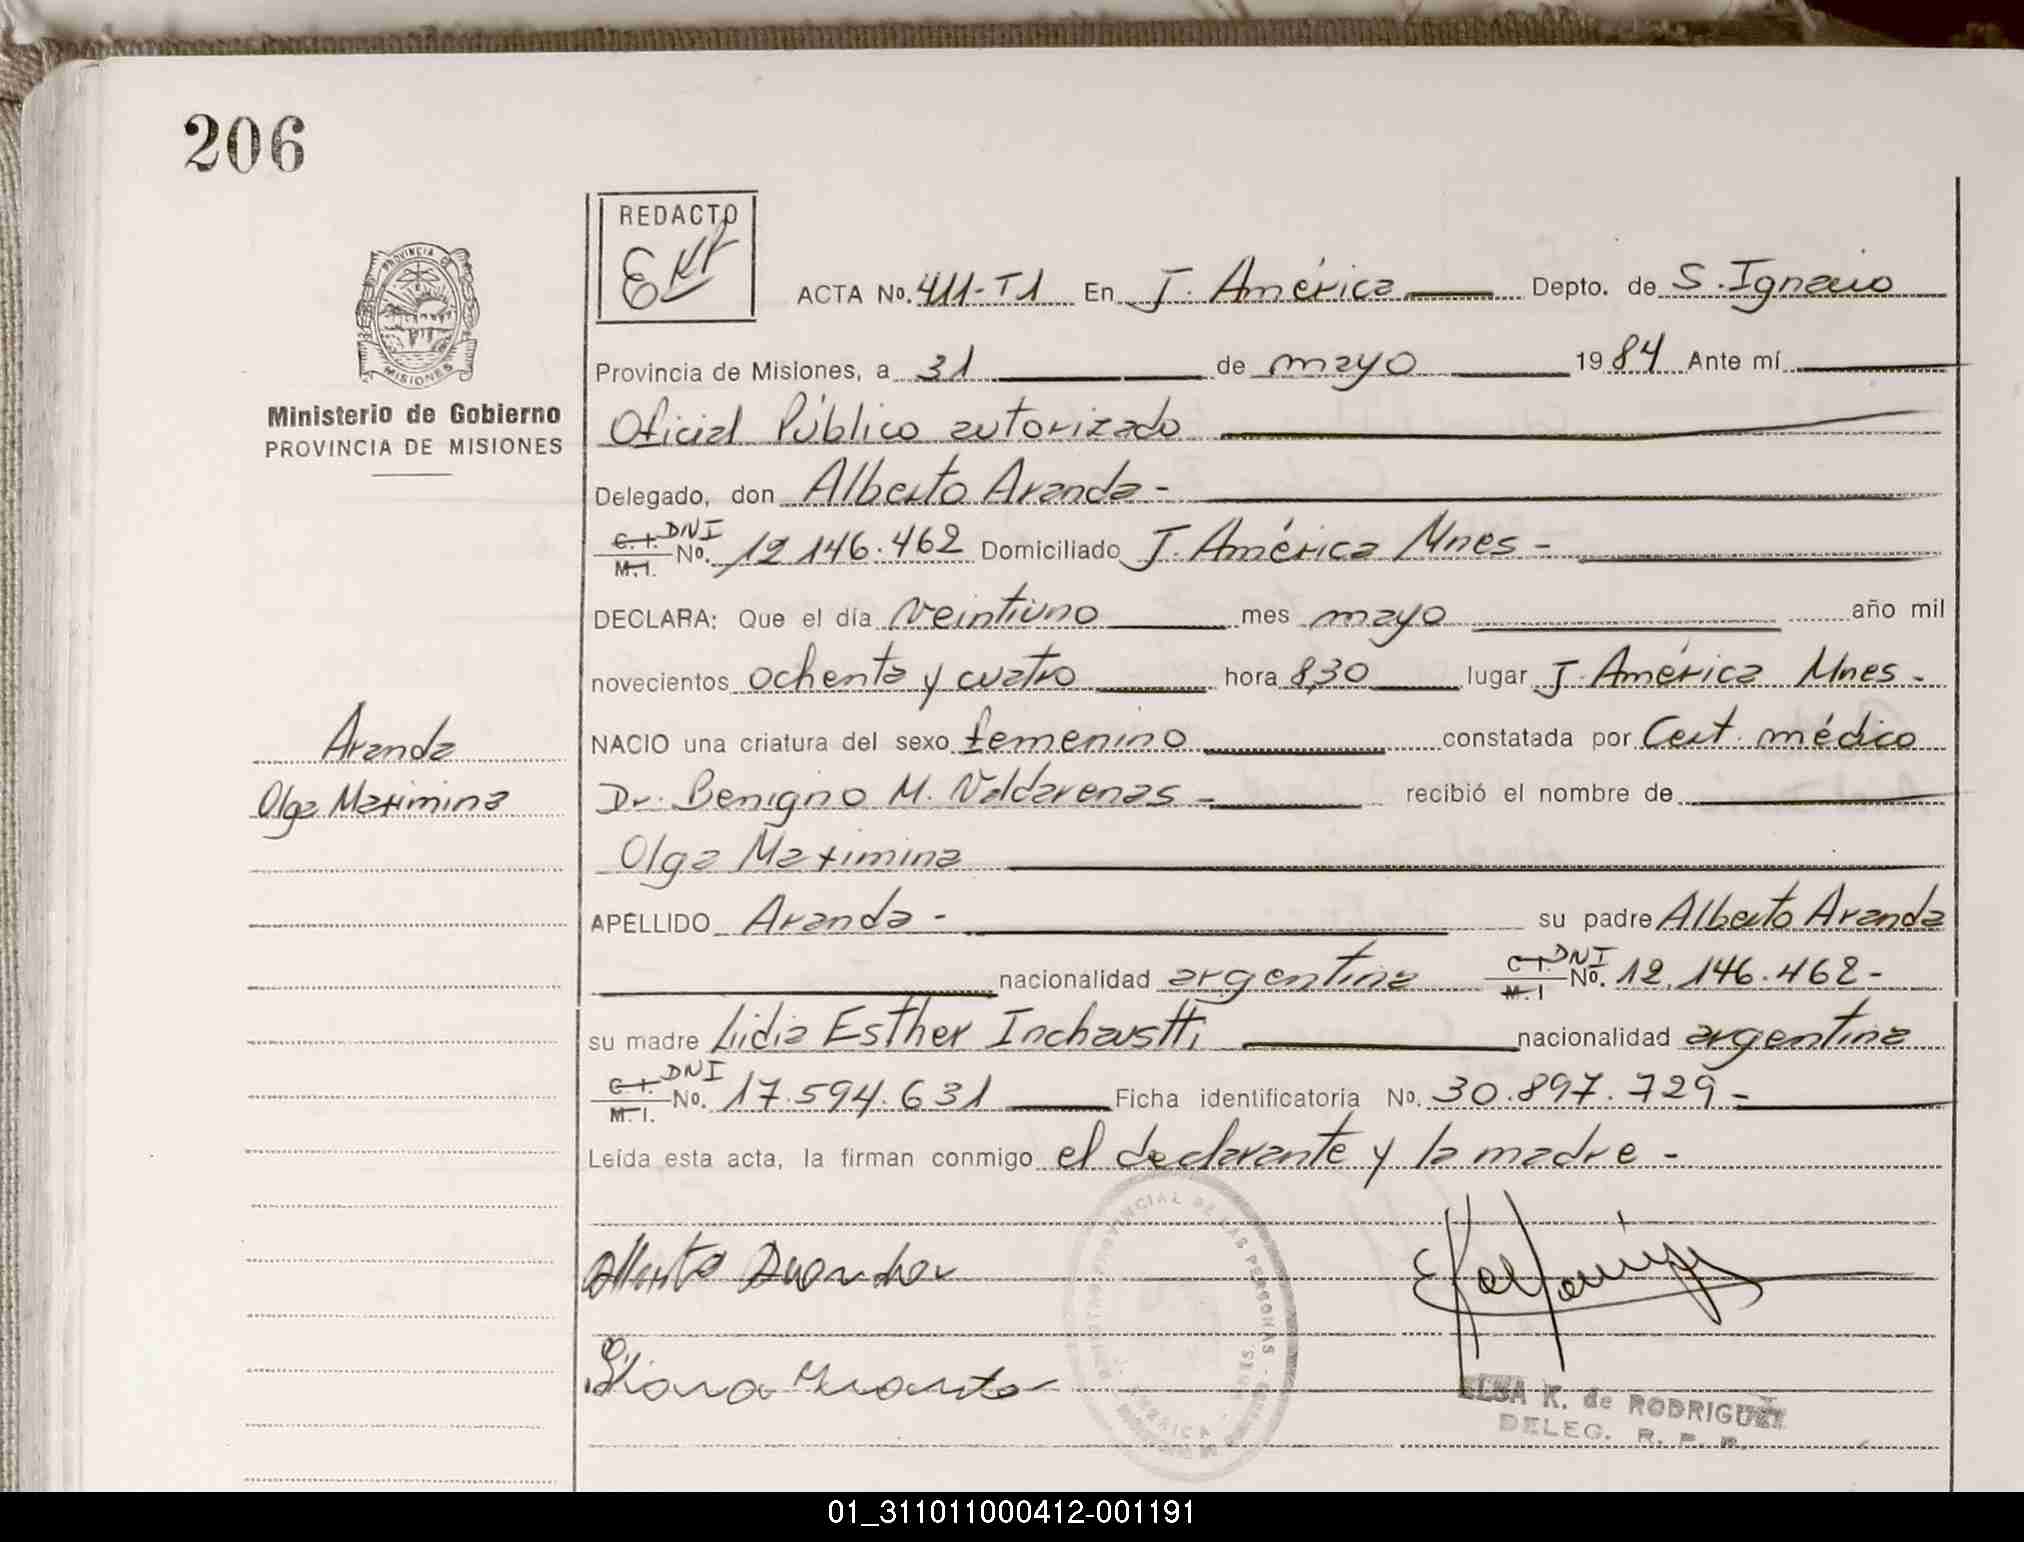 206
REDACTO
PROVINCIA DE
MISIONES
Ministerio de Gobierno
PROVINCIA DE MISIONES
ACTA No. 411-T1 En J. América Depto. de S. Ignacio
Provincia de Misiones, a 31 de mayo 1984 Ante mí
Oficial Público autorizado
Delegado, don Alberto Aranda -
C.I. M.I. DNI No. 12.146.462 Domiciliado J. América Mnes -
DECLARA: Que el día veintiuno mes mayo año mil
novecientos ochenta y cuatro hora 8,30 lugar J. América Mnes -
NACIO una criatura del sexo femenino constatada por Cert. médico
Dr. Benigno M. Valdarenas - recibió el nombre de
Olga Maximina
APELLIDO Aranda - su padre Alberto Aranda
nacionalidad argentina C.I. M.I DNI No. 12.146.462 -
su madre Lidia Esther Inchaustti nacionalidad argentina
C.I. M.I. DNI No. 17.594.631 Ficha identificatoria No. 30.897.729 -
Leída esta acta, la firman conmigo el declarante y la madre -
Aranda
Olga Maximina
REGISTRO PROVINCIAL DE LAS PERSONAS
ELSA K. de RODRIGUEZ
DELEG. R. P. P.
01_311011000412-001191